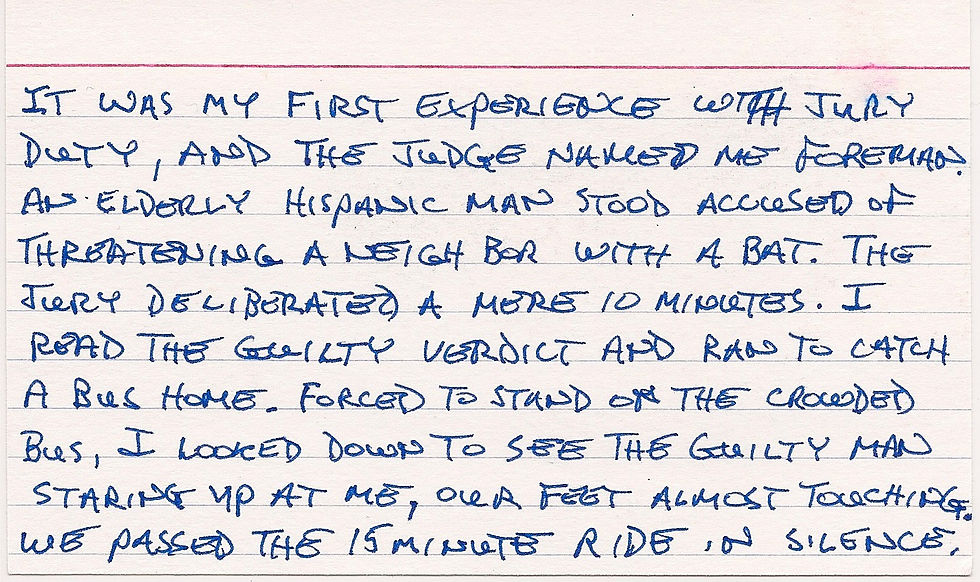 IT WAS MY FIRST EXPERIENCE WITH JURY
DUTY, AND THE JUDGE NAMED ME FOREMAN.
AN ELDERLY HISPANIC MAN STOOD ACCUSED OF
THREATENING A NEIGHBOR WITH A BAT. THE
JURY DELIBERATED A MERE 10 MINUTES. I
READ THE GUILTY VERDICT AND RAN TO CATCH
A BUS HOME. FORCED TO STAND ON THE CROWDED
BUS, I LOOKED DOWN TO SEE THE GUILTY MAN
STARING UP AT ME, OUR FEET ALMOST TOUCHING.
WE PASSED THE 15 MINUTE RIDE IN SILENCE.